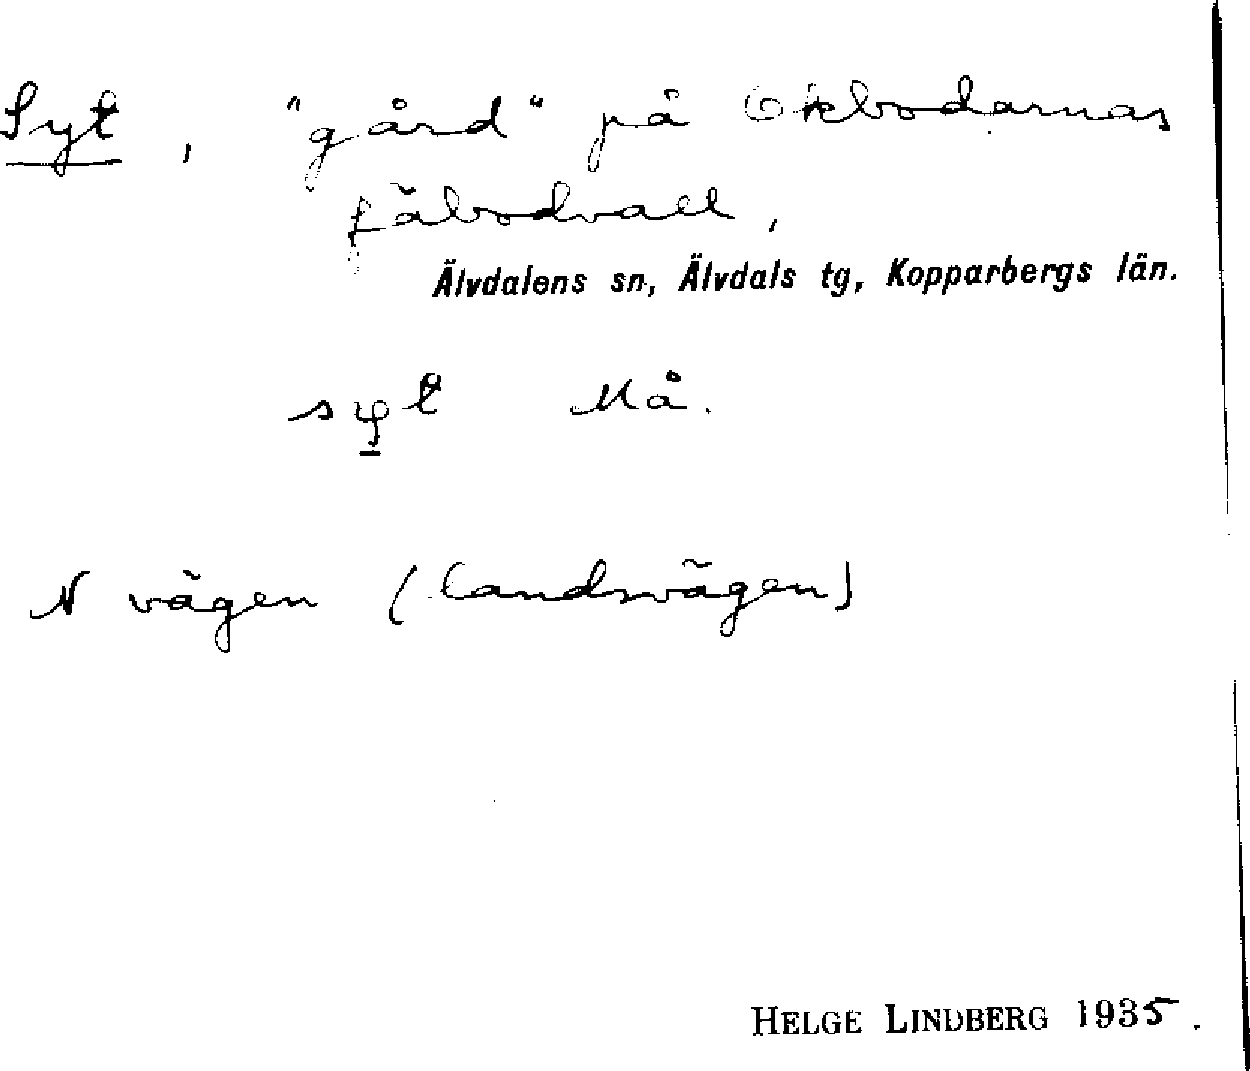 Syt, "gård" på Okbodarnas
fäbodvall,
Älvdalens sn, Älvdals tg, Kopparbergs län.
syt Må.
N vägen (landsvägen)
HELGE LINDBERG 1935.